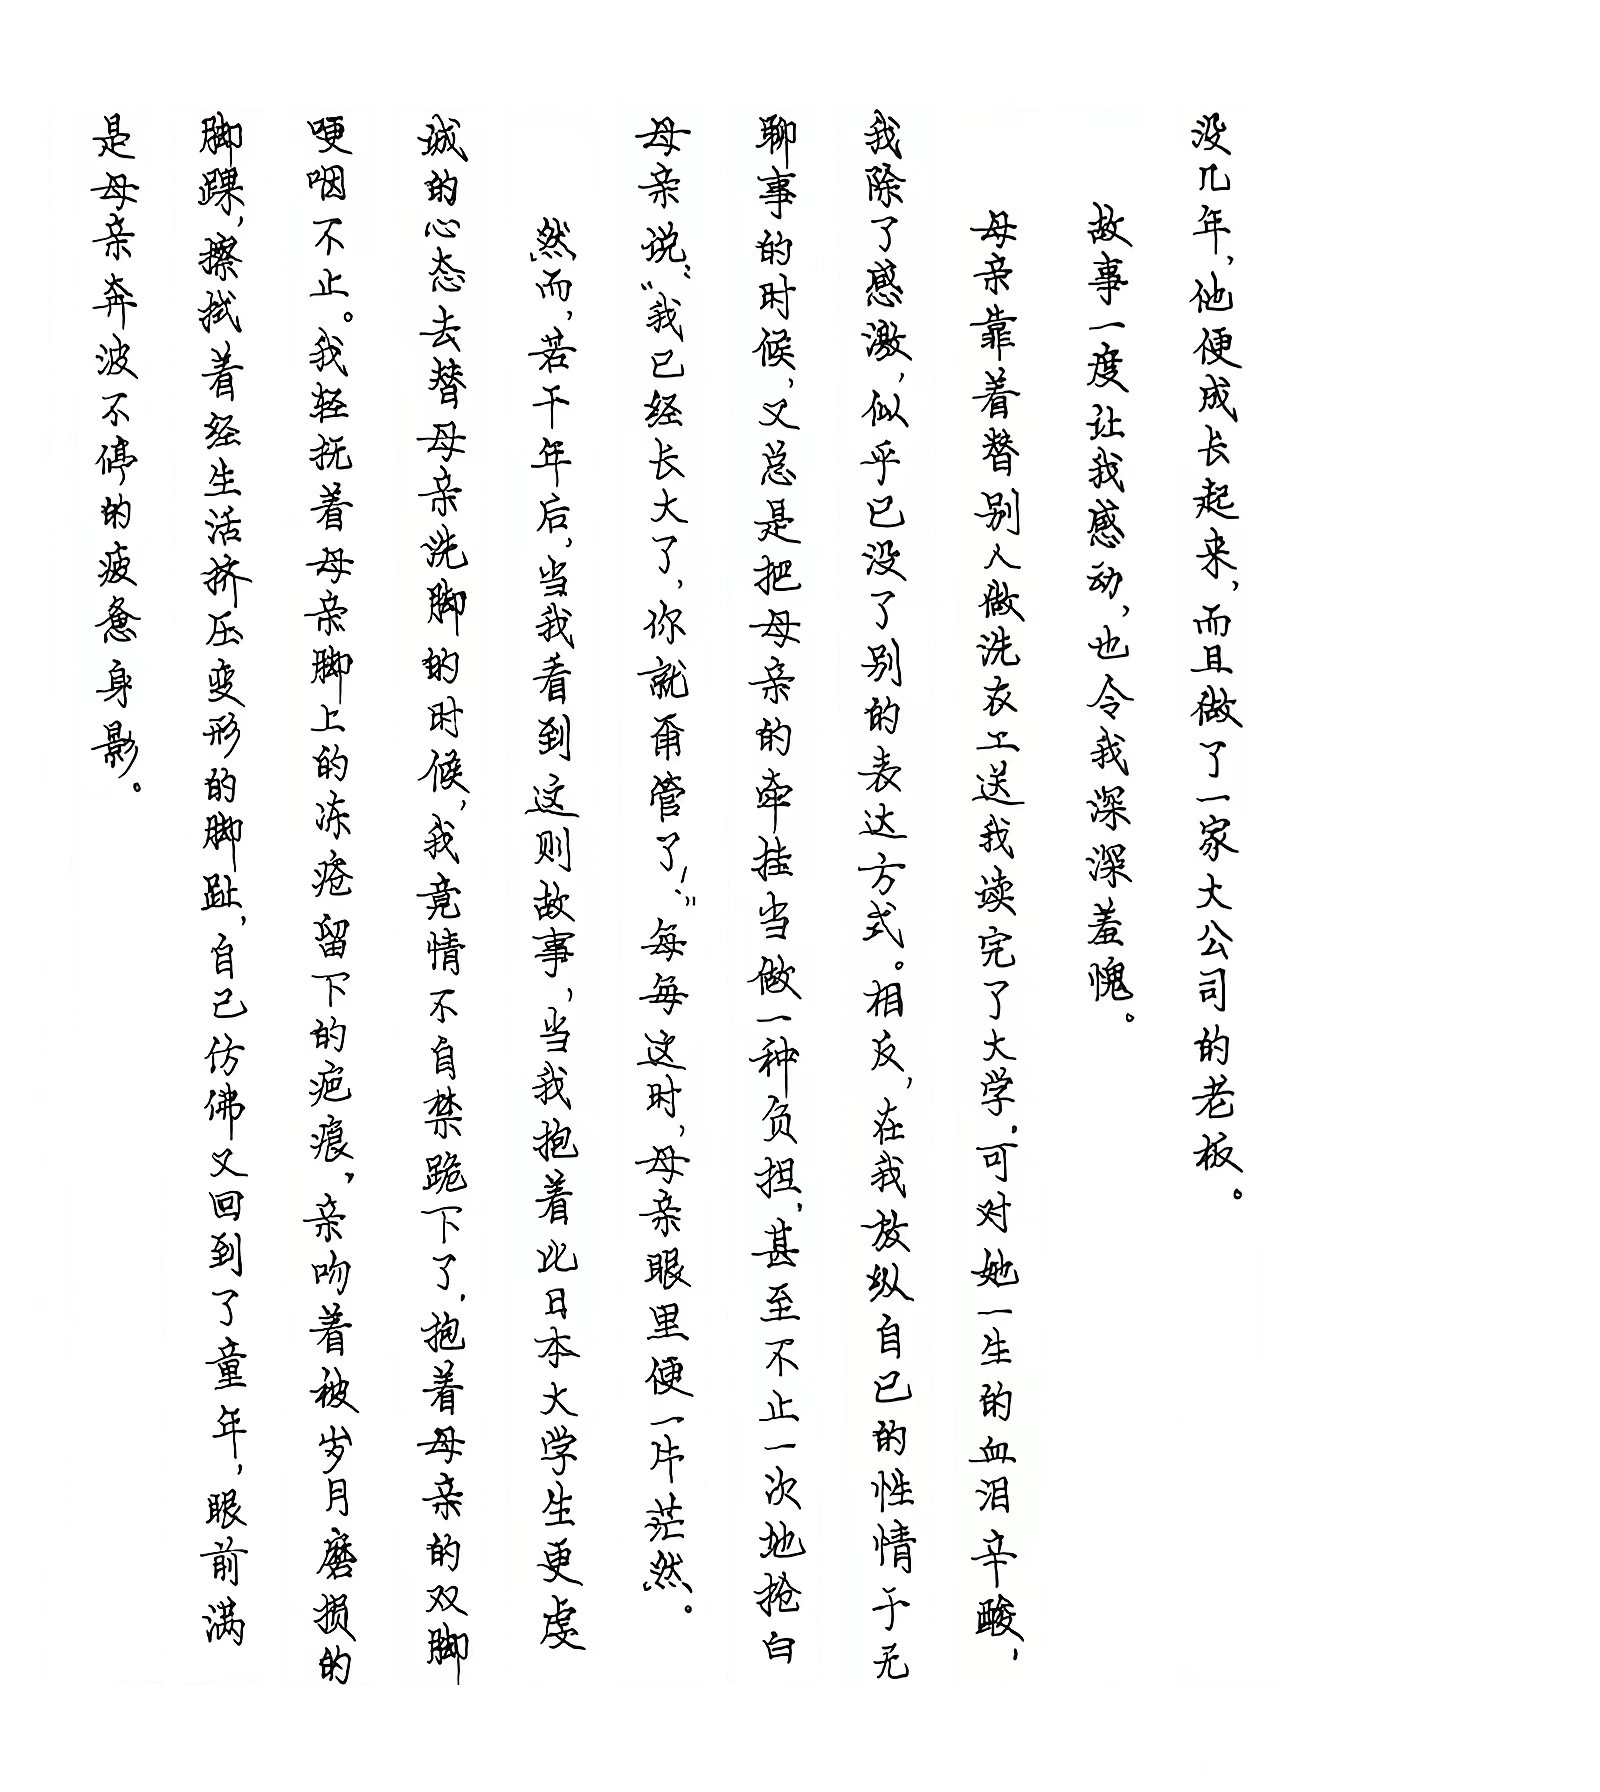 没几年,他便成长起来,而且做了一家大公司的老板。
故事一度让我感动,也令我深深羞愧。
母亲靠着替别人做洗衣工送我读完了大学.可对她一生的血泪辛酸,
我除了感激,似乎已没了别的表达方式。相反,在我放纵自己的性情于无
聊事的时候,又总是把母亲的牵挂当做一种负担,甚至不止一次地抢白
母亲说:“我已经长大了,你就甭管了!”每每这时,母亲眼里便一片茫然。
然而,若干年后,当我看到这则故事,当我抱着比日本大学生更虔
诚的心态去替母亲洗脚的时候,我竟情不自禁跪下了.抱着母亲的双脚
哽咽不止。我轻抚着母亲脚上的冻疮留下的疤痕,亲吻着被岁月磨损的
脚踝,擦拭着经生活挤压变形的脚趾,自己仿佛又回到了童年,眼前满
是母亲奔波不停的疲惫身影。